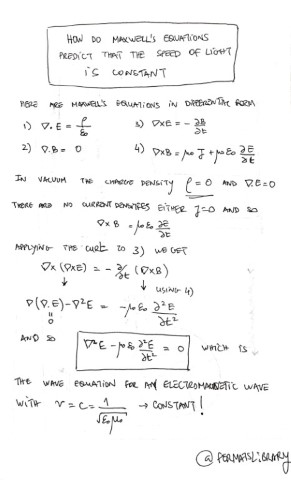 HOW DO MAXWELL'S EQUATIONS
PREDICT THAT THE SPEED OF LIGHT
IS CONSTANT
HERE ARE MAXWELL'S EQUATIONS IN DIFFERENTIAL FORM
1) ∇·E = ρ/ε₀ 3) ∇×E = -∂B/∂t
2) ∇·B = 0 4) ∇×B = μ₀ J + μ₀ε₀ ∂E/∂t
IN VACUUM THE CHARGE DENSITY ρ=0 AND ∇·E=0
THERE ARE NO CURRENT DENSITIES EITHER J=0 AND SO
∇×B = μ₀ε₀ ∂E/∂t
APPLYING THE CURL TO 3) WE GET
∇×(∇×E) = -∂/∂t (∇×B)
↓ ↓ USING 4)
∇(∇·E)-∇²E = -μ₀ε₀ ∂²E/∂t²
=
0
AND SO ∇²E - μ₀ε₀ ∂²E/∂t² = 0 WHICH IS
THE WAVE EQUATION FOR AN ELECTROMAGNETIC WAVE
WITH v = c = 1/√ε₀μ₀ → CONSTANT!
@FERMATSLIBRARY